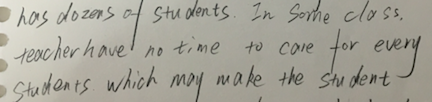 has dozens of students. In some class,
teacher have no time to care for every
students which may make the student